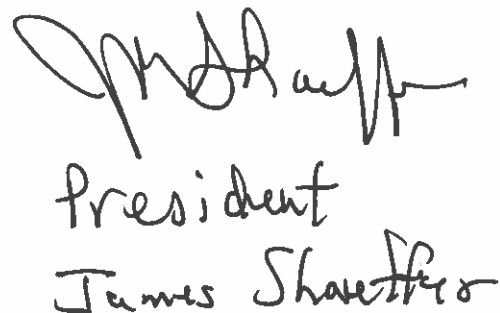 President
James Shaeffer